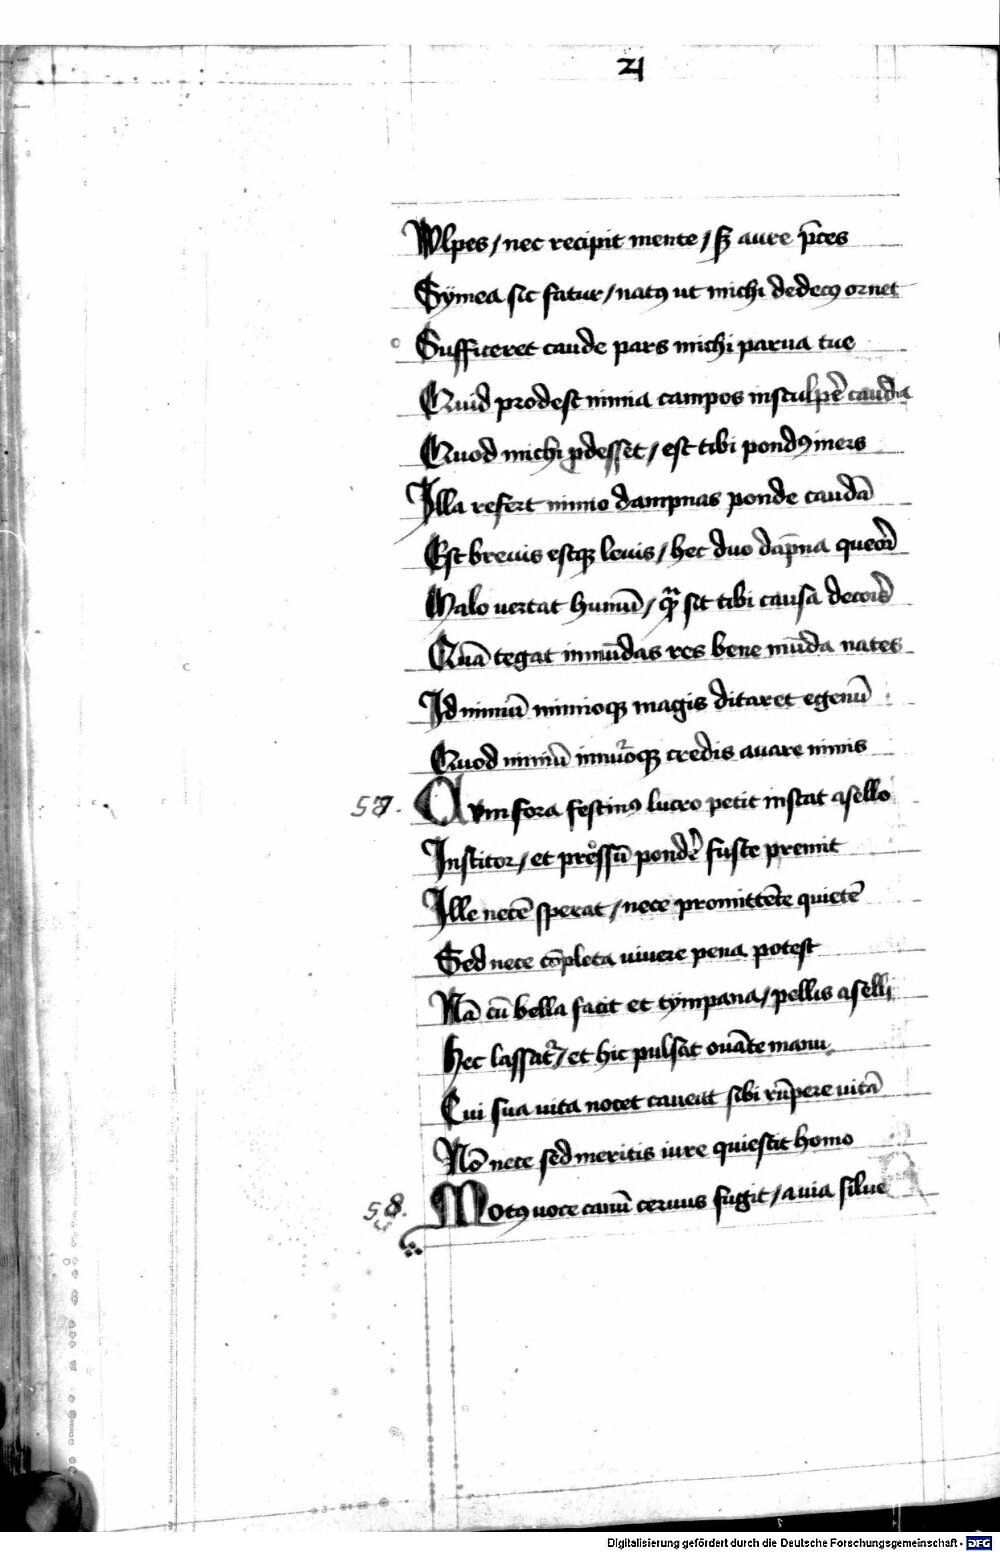 21
Wlpes / nec recipit mente / sꝫ aure p̄ces
Symea sic fatur / natꝯ ut michi dedecꝯ ornet
Sufficeret caude pars michi parua tue
Quid prodest nimia campos insculpe͛ cauda
Quod michi ꝓdesset / est tibi pondꝯ iners
Illa refert nimio dampnas ponde caudā
Est breuis estqꝫ leuis / hec duo dāpna queror
Malo uertat humū / qͣꝫ sit tibi causa decoris
Quā tegat inmūdas res bene mūda nates
Id nimiū nimioqꝫ magis ditaret egenū
Quod nimiū
credis auare nimis
57.
Qvm fora festinꝯ lucro petit instat asello
Institor / et pressū ponde͛ fuste premit
Ille necē sperat / nece promittēte quietē
Sed nece cōpleta uiuere pena potest
Nā cū bella facit et tympana / pellis aselli
Hec lassat᷑ / et hic pulsat ouāte manu
Cui sua uita nocet caueat sibi rūpere uitā
Nō nece sed meritis iure quiescit homo
58.
Motꝯ uoce canū ceruus fugit / auia silue
Digitalisierung gefördert durch die Deutsche Forschungsgemeinschaft - DFG